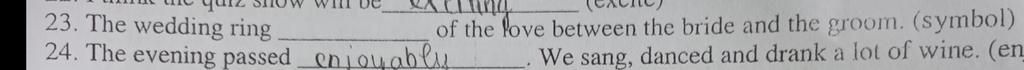 quiz show will be exciting (excite)
23. The wedding ring ____________ of the love between the bride and the groom. (symbol)
24. The evening passed enjoyably. We sang, danced and drank a lot of wine. (en